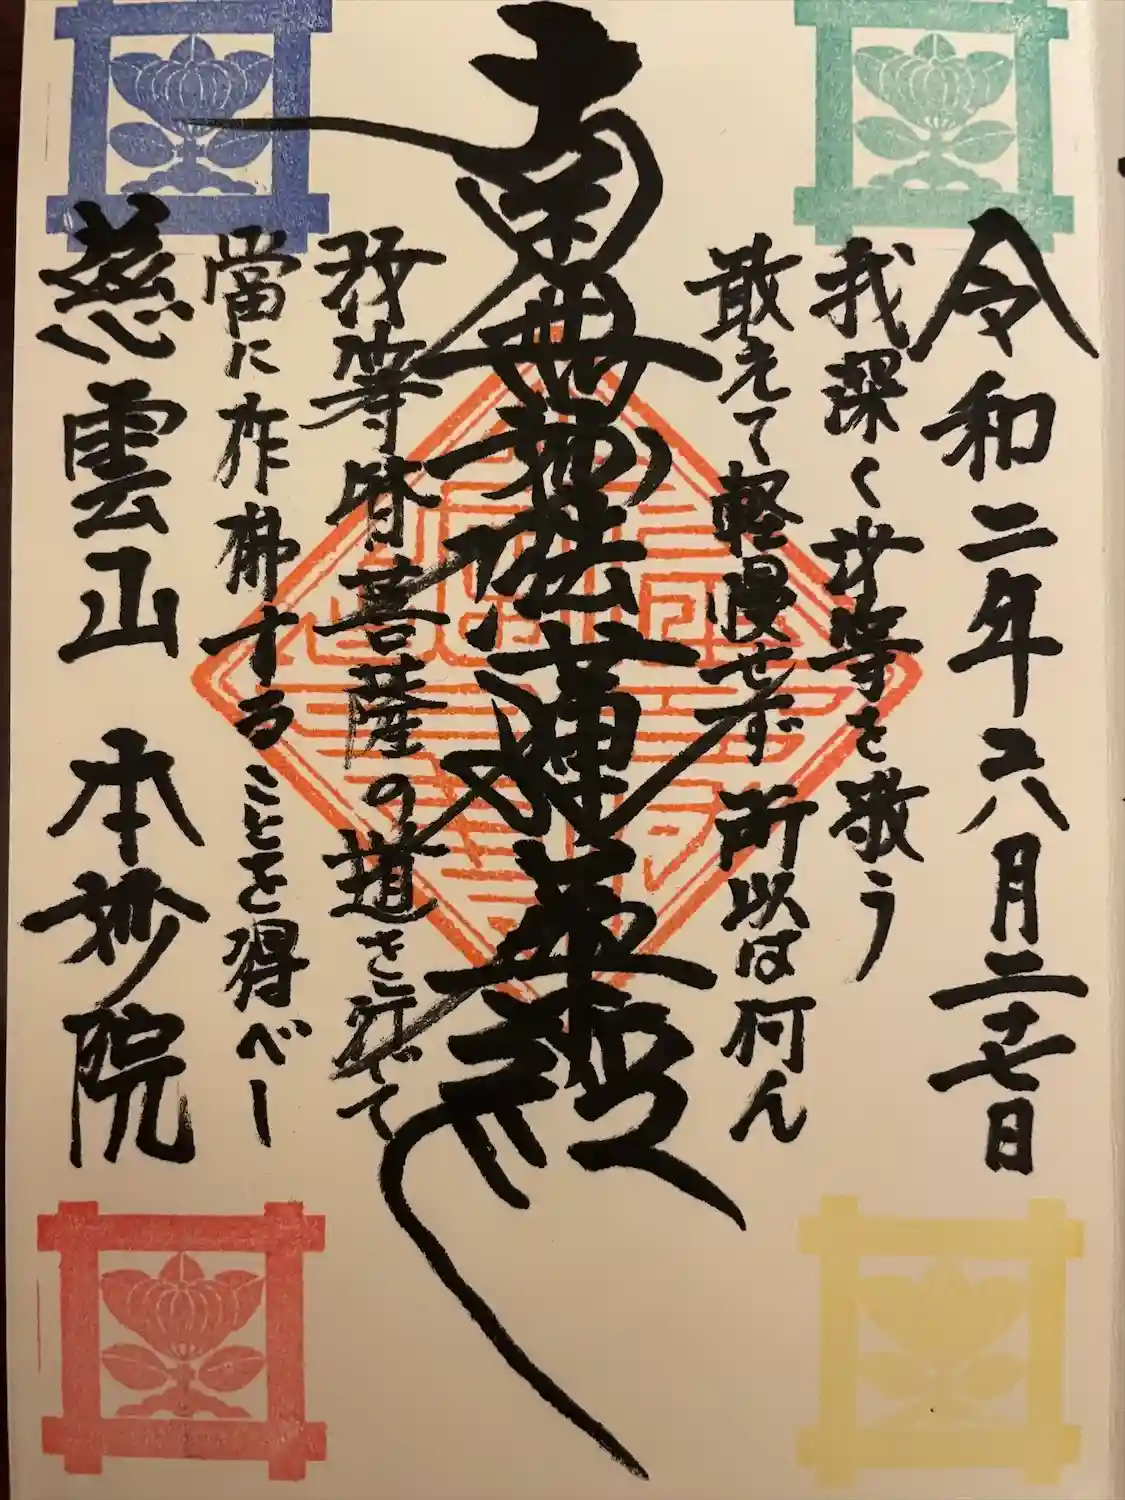 令和二年六月二十七日
我深く汝等を敬う
敢えて軽慢せず所以は何ん
南無妙法蓮華経
汝等皆菩薩の道を行じて
當に作佛することを得べし
慈雲山 本妙院